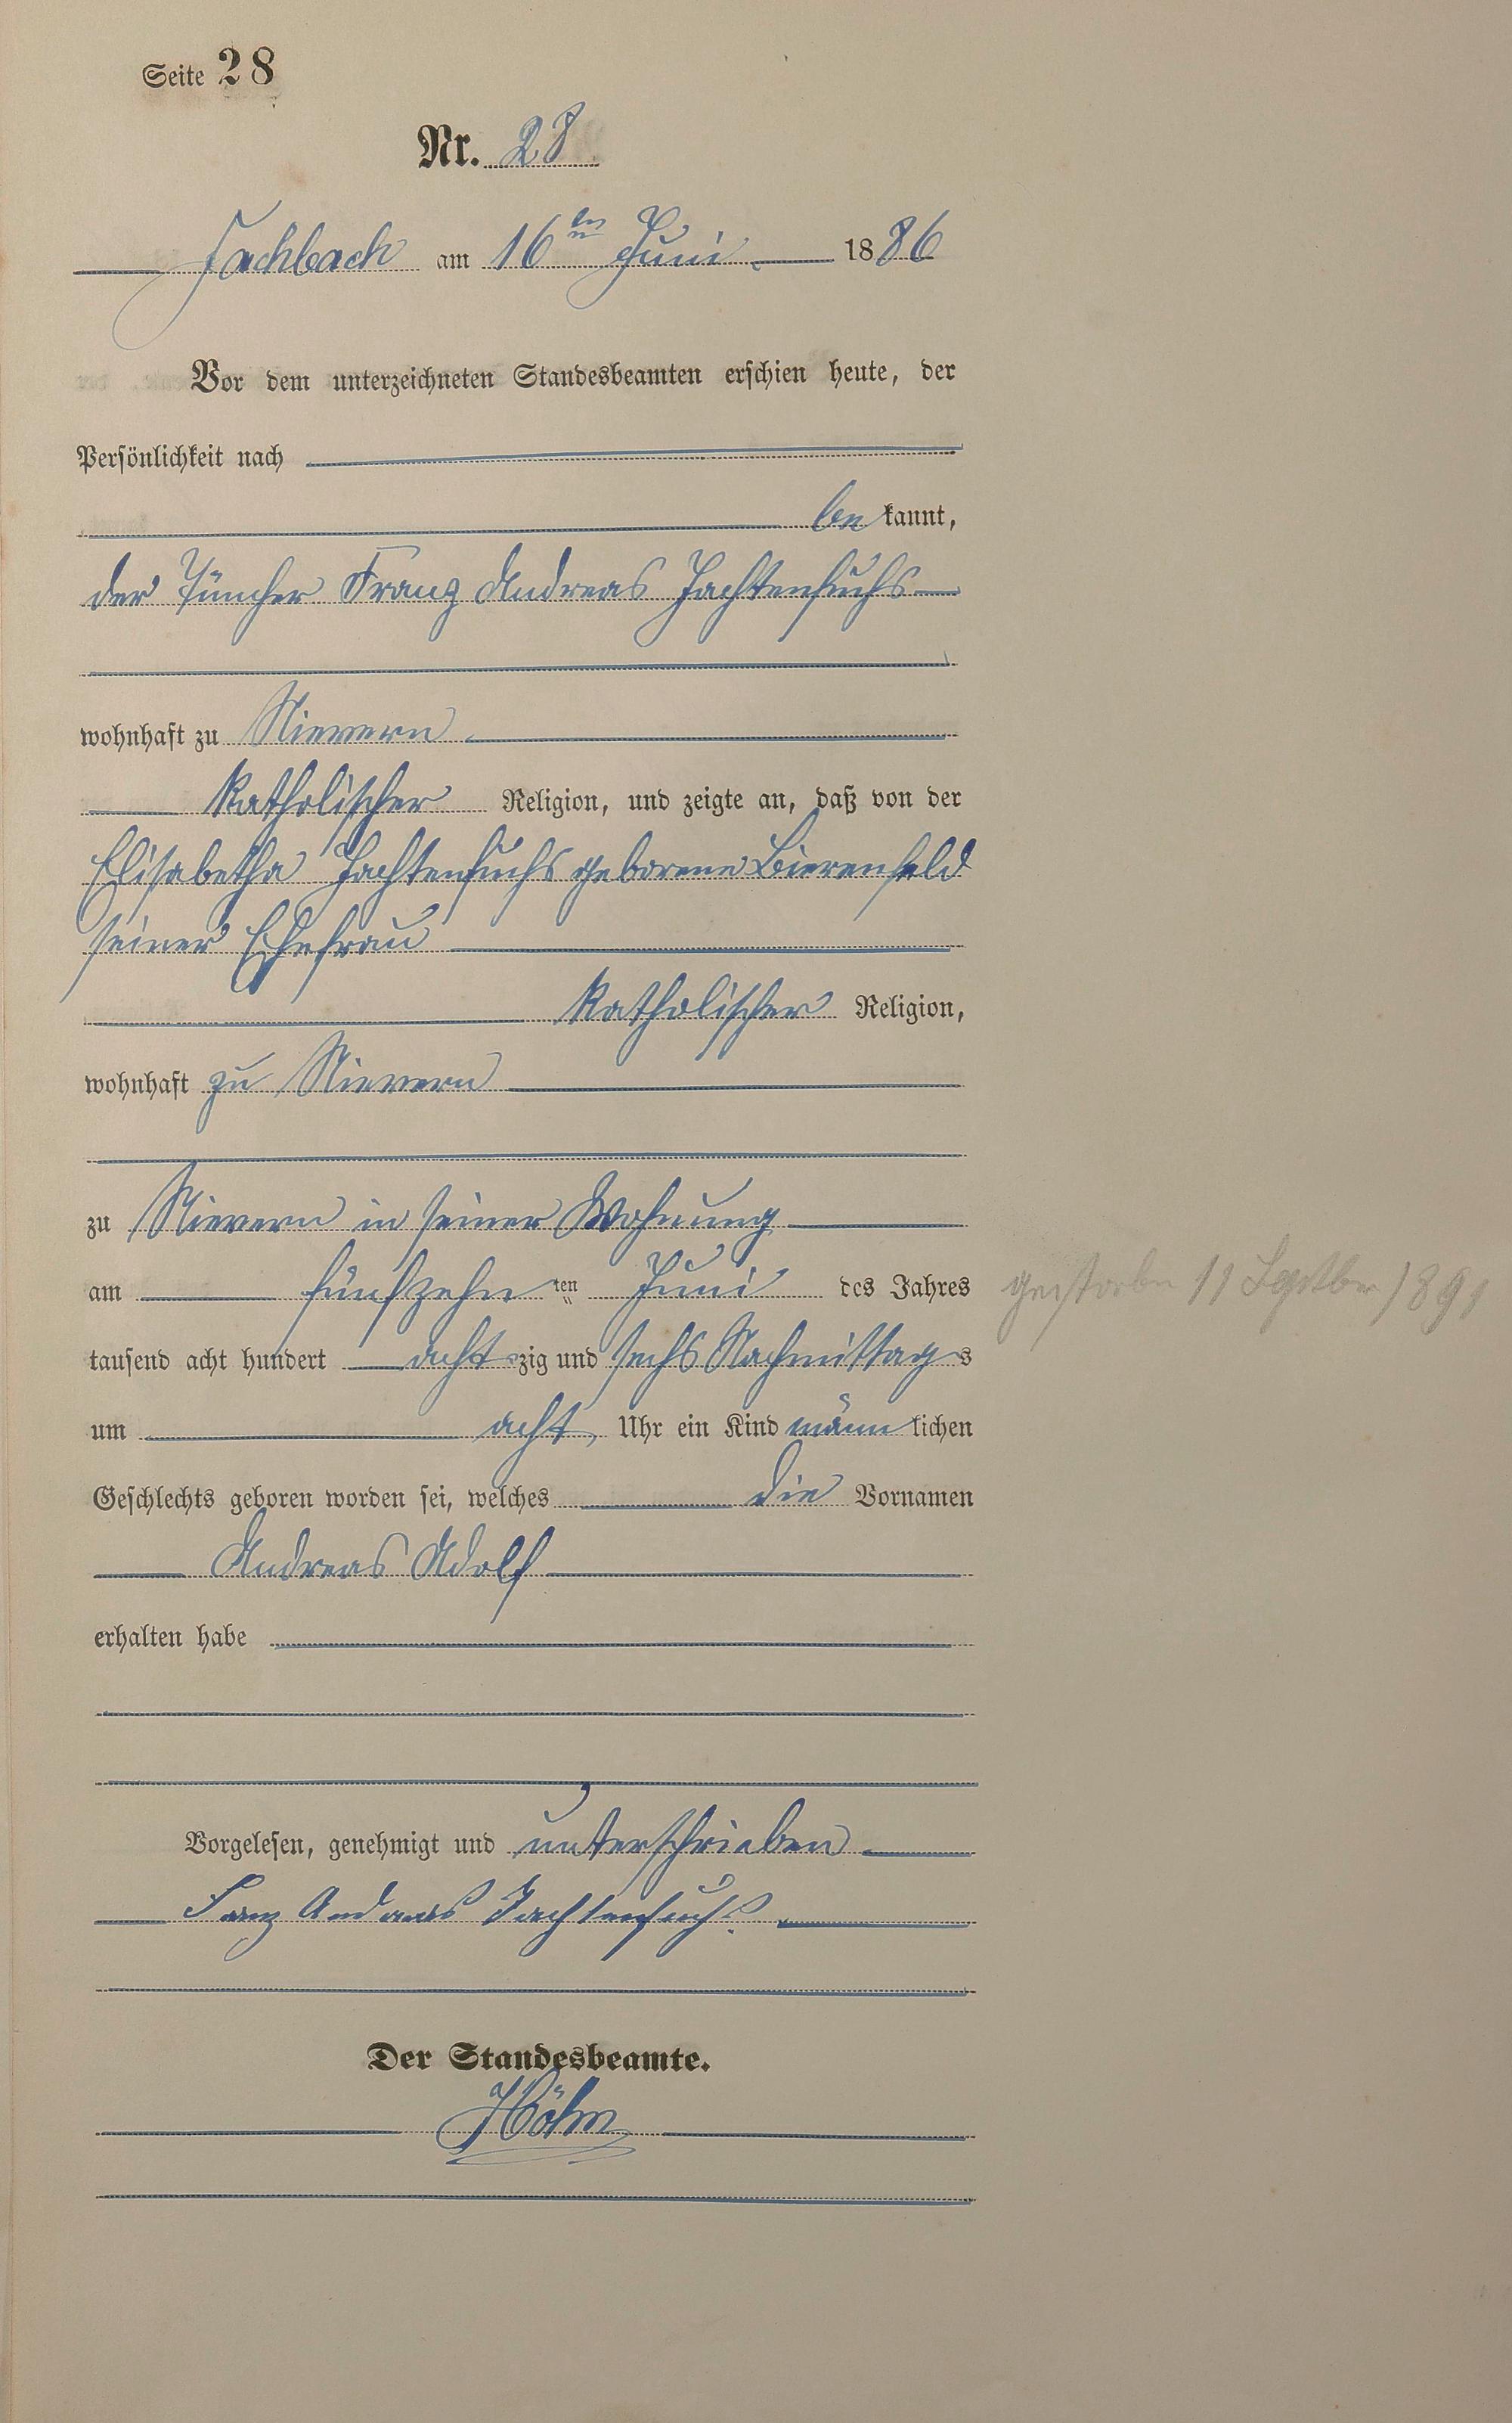 Seite 28
Nr. 28
Fachbach am 16ten Juni 1886
Vor dem unterzeichneten Standesbeamten erschien heute, der
Persönlichkeit nach
be kannt,
der Tüncher Franz Andreas Jachtenfuchs
wohnhaft zu Nievern
katholischer Religion, und zeigte an, daß von der
Elisabetha Jachtenfuchs geborene Bierenfeld
seiner Ehefrau
katholischer Religion,
wohnhaft zu Nievern
zu Nievern in seiner Wohnung
am fünfzehn ten Juni des Jahres
gestorben 11 Septber 1891
tausend acht hundert acht zig und sechs Nachmittag s
um acht Uhr ein Kind männ lichen
Geschlechts geboren worden sei, welches die Vornamen
Andreas Adolf
erhalten habe
Vorgelesen, genehmigt und unterschrieben
Franz Andreas Jachtenfuchs.
Der Standesbeamte.